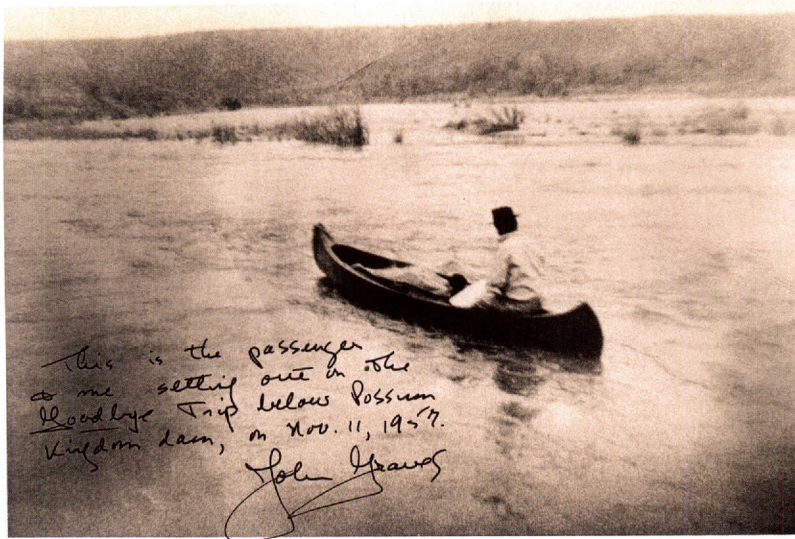 This is the passenger
& me setting out on the
Goodbye Trip below Possum
Kingdom dam, on Nov. 11, 1957.
John Graves